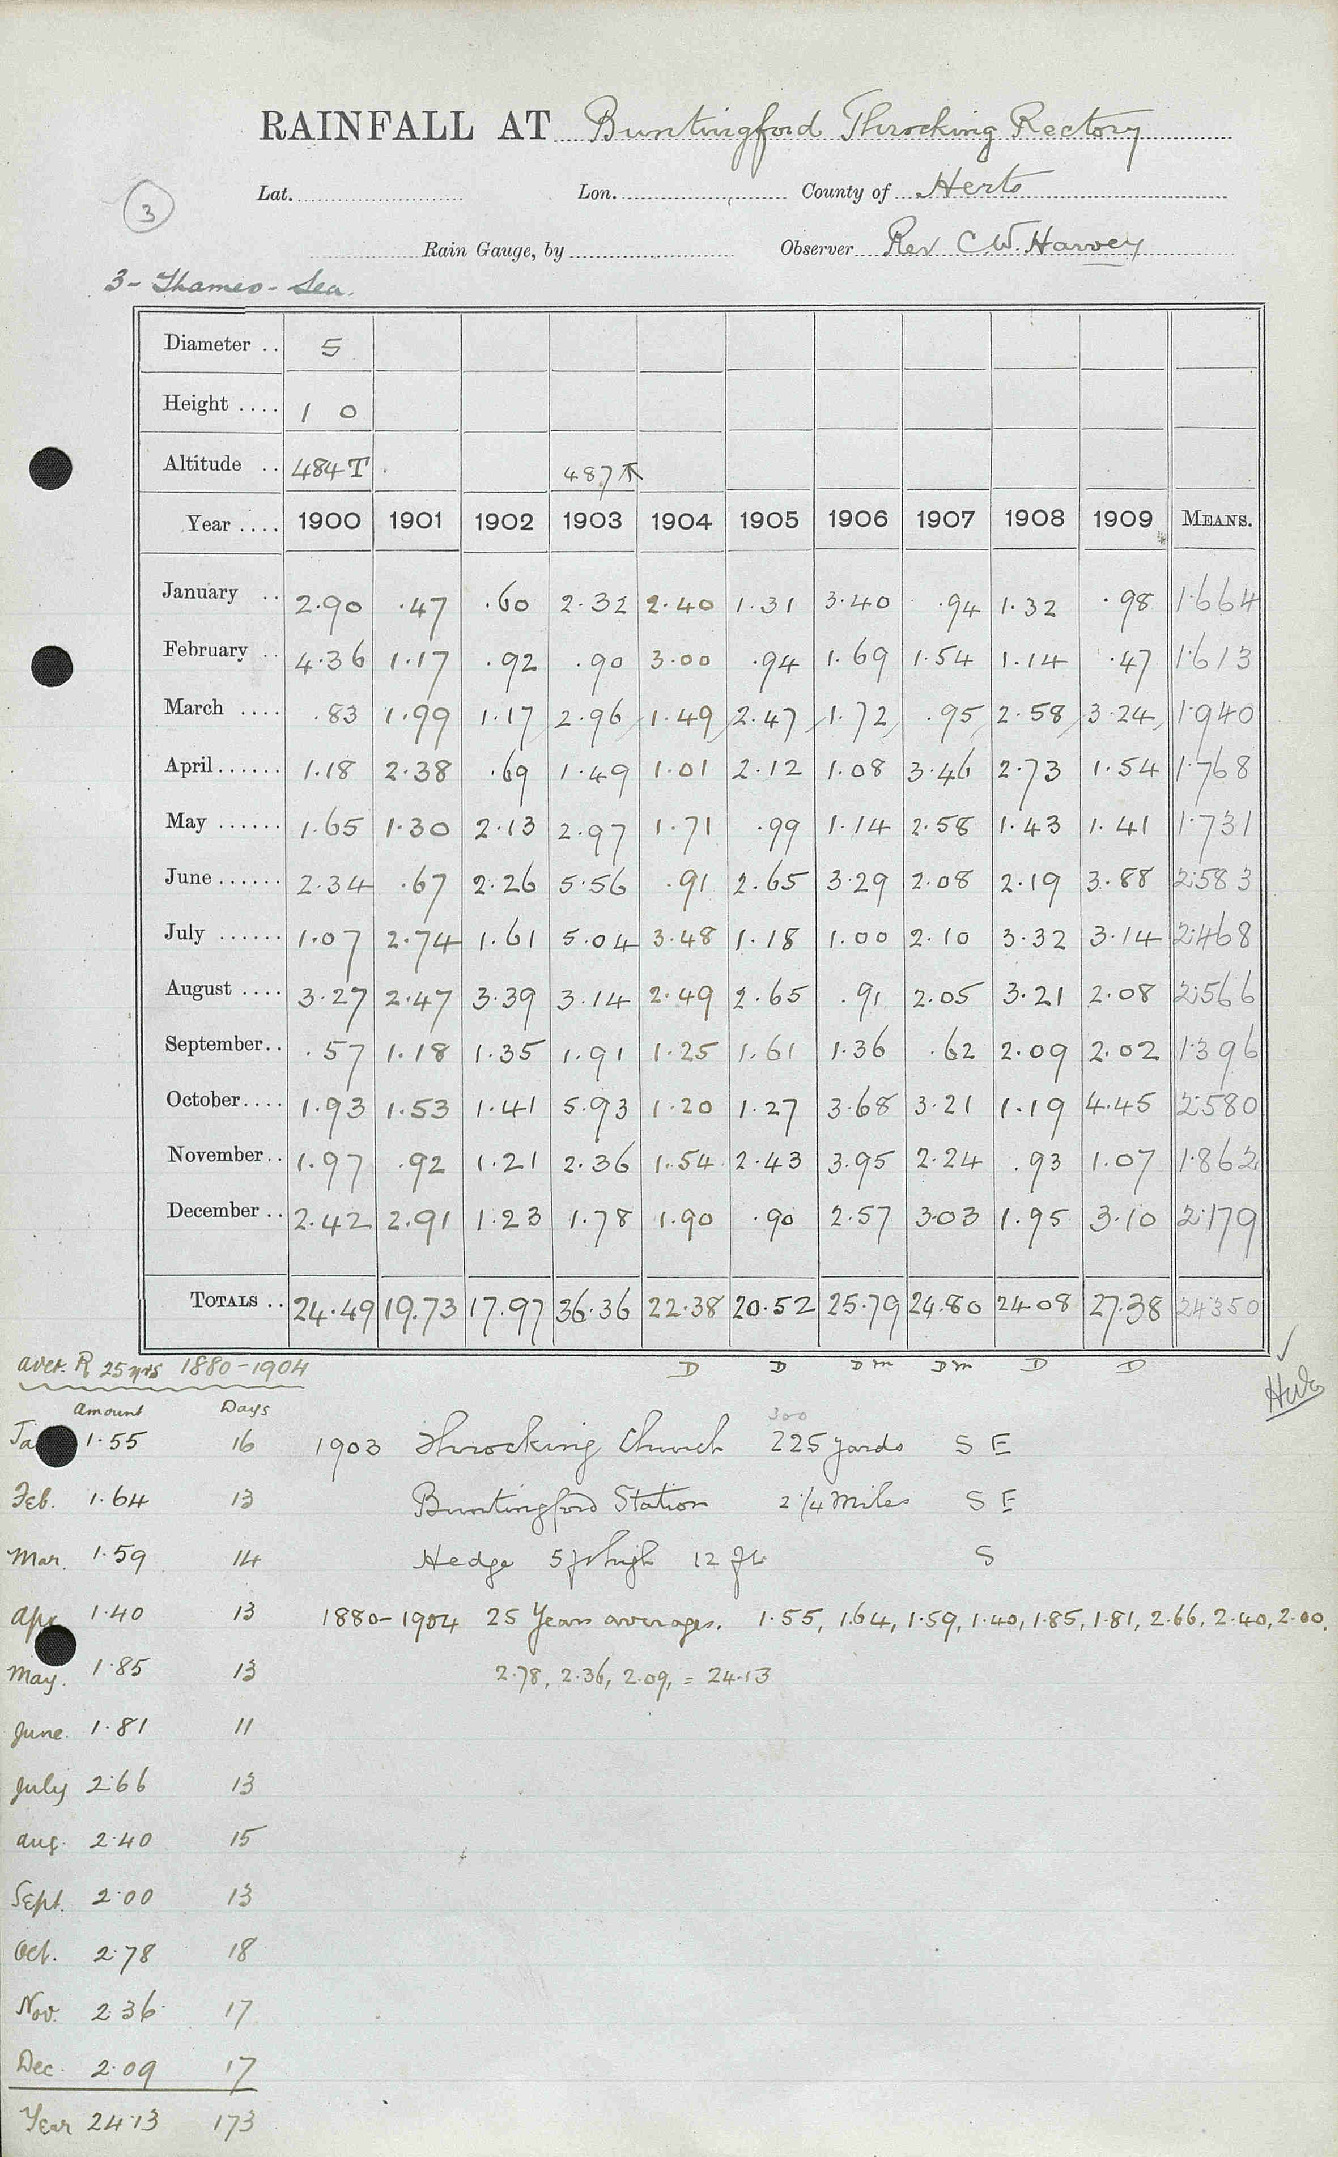 RAINFALL AT Buntingford Throcking Rectory
Lat. Lon. County of Herts
3
Rain Gauge, by Observer Rev C W. Harvey
3- Thames - Sea.
Diameter .. 5
Height .... 1 0
Altitude .. 484T 487
Year .... 1900 1901 1902 1903 1904 1905 1906 1907 1908 1909 MEANS.
January .. 2.90 .47 .60 2.32 2.40 1.31 3.40 .94 1.32 .98 1.664
February .. 4.36 1.17 .92 .90 3.00 .94 1.69 1.54 1.14 .47 1.613
March .... .83 1.99 1.17 2.96 1.49 2.47 1.72 .95 2.58 3.24 1.940
April...... 1.18 2.38 .69 1.49 1.01 2.12 1.08 3.46 2.73 1.54 1.768
May ...... 1.65 1.30 2.13 2.97 1.71 .99 1.14 2.58 1.43 1.41 1.731
June...... 2.34 .67 2.26 5.56 .91 2.65 3.29 2.08 2.19 3.88 2.583
July ...... 1.07 2.74 1.61 5.04 3.48 1.18 1.00 2.10 3.32 3.14 2.468
August .... 3.27 2.47 3.39 3.14 2.49 2.65 .91 2.05 3.21 2.08 2.566
September.. .57 1.18 1.35 1.91 1.25 1.61 1.36 .62 2.09 2.02 1.396
October.... 1.93 1.53 1.41 5.93 1.20 1.27 3.68 3.21 1.19 4.45 2.580
November.. 1.97 .92 1.21 2.36 1.54 2.43 3.95 2.24 .93 1.07 1.862
December .. 2.42 2.91 1.23 1.78 1.90 .90 2.57 3.03 1.95 3.10 2.179
TOTALS .. 24.49 19.73 17.97 36.36 22.38 20.52 25.79 24.80 24.08 27.38 24.350
D D Dm Dm D D
aver. R 25 yrs 1880-1904
Amount Days
Ja 1.55 16
Feb. 1.64 13
Mar. 1.59 14
Apr 1.40 13
May. 1.85 13
June. 1.81 11
July 2.66 13
Aug. 2.40 15
Sept. 2.00 13
Oct. 2.78 18
Nov. 2.36 17
Dec. 2.09 17
Year 24.13 173
300
1903 Throcking Church 225 yards S E
Buntingford Station 2 1/4 miles S E
Hedge 5 ft high 12 ft S
1880-1904 25 Years averages. 1.55, 1.64, 1.59, 1.40, 1.85, 1.81, 2.66, 2.40, 2.00,
2.78, 2.36, 2.09, = 24.13